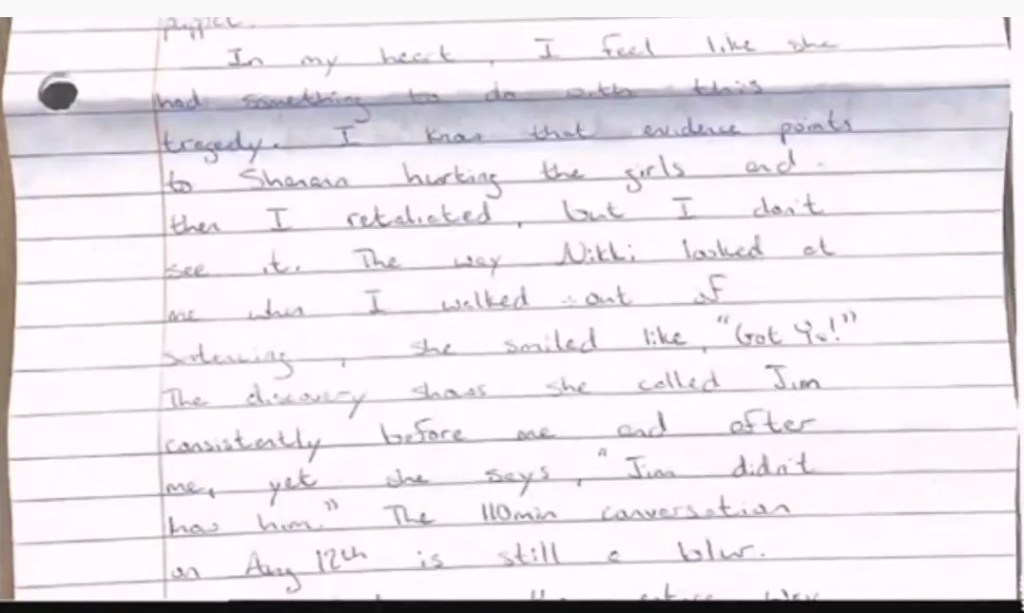 In my heart, I feel like she
had something to do with this
tragedy. I know that evidence points
to Shanann hurting the girls and
then I retaliated, but I don't
see it. The way Nikki looked at
me when I walked out of
sentencing, she smiled like, "Got Ya!"
The discovery shows she called Jim
consistently before me and after
me, yet she says, "Jim didn't
him." The 110min conversation
on Aug 12th is still a blur.